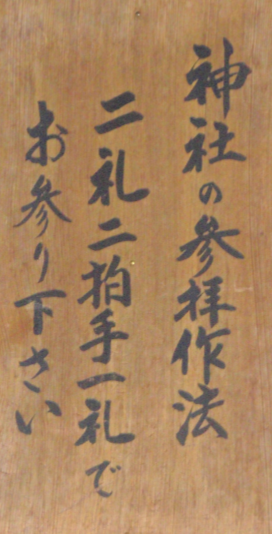 神社の参拝作法
二礼二拍手一礼で
お参り下さい